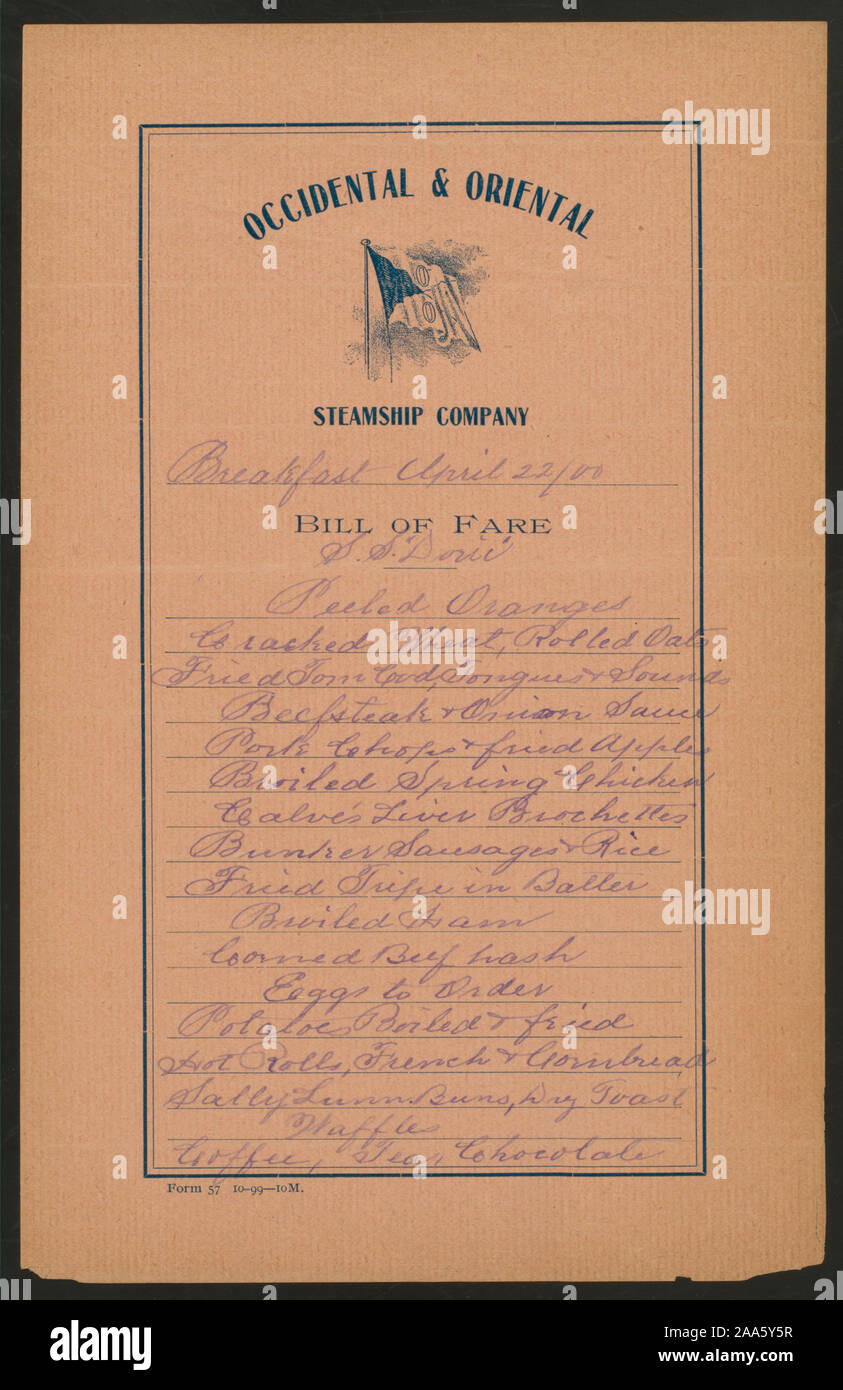 OCCIDENTAL & ORIENTAL
O
O
STEAMSHIP COMPANY
Breakfast April 22/00
BILL OF FARE
S.S. "Doric"
Peeled Oranges
Cracked Wheat, Rolled Oats
Fried Tom Cod, Tongues & Sounds
Beefsteak & Onion Sauce
Pork Chops & fried Apples
Broiled Spring Chicken
Calve's Liver Brochettes
Sausages & Rice
Fried Tripe in Batter
Broiled Ham
Corned Beef hash
Eggs to Order
Potatoes Boiled & fried
Hot Rolls, French & Cornbread
Sally Lunn Buns, Dry Toast
Waffles
Coffee, Tea, Chocolate
Form 57 10-99—10M.
alamy
Image ID: 2AA5Y5R
www.alamy.com